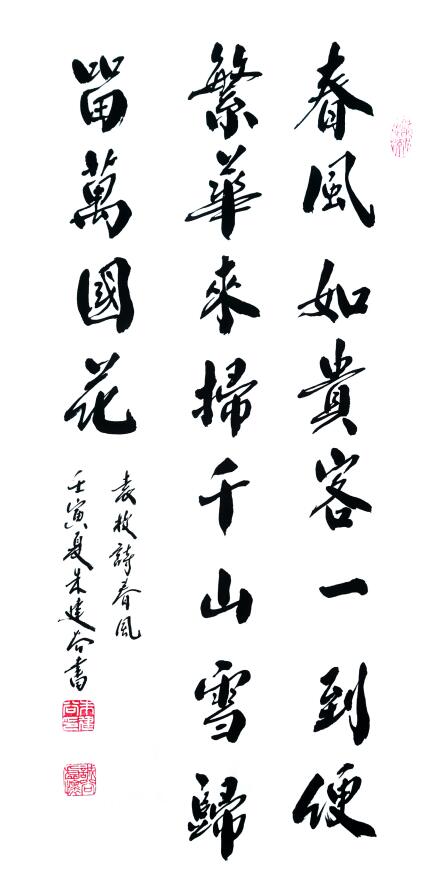 春風如貴客一到便
繁華來掃千山雪歸
留萬國花
袁枚詩春風
壬寅夏朱建谷書